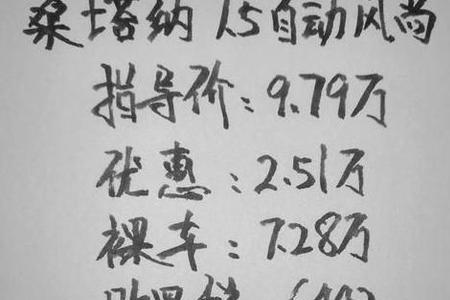 桑塔纳 1.5自动风尚
指导价:9.79万
优惠:2.51万
裸车:7.28万
购置税